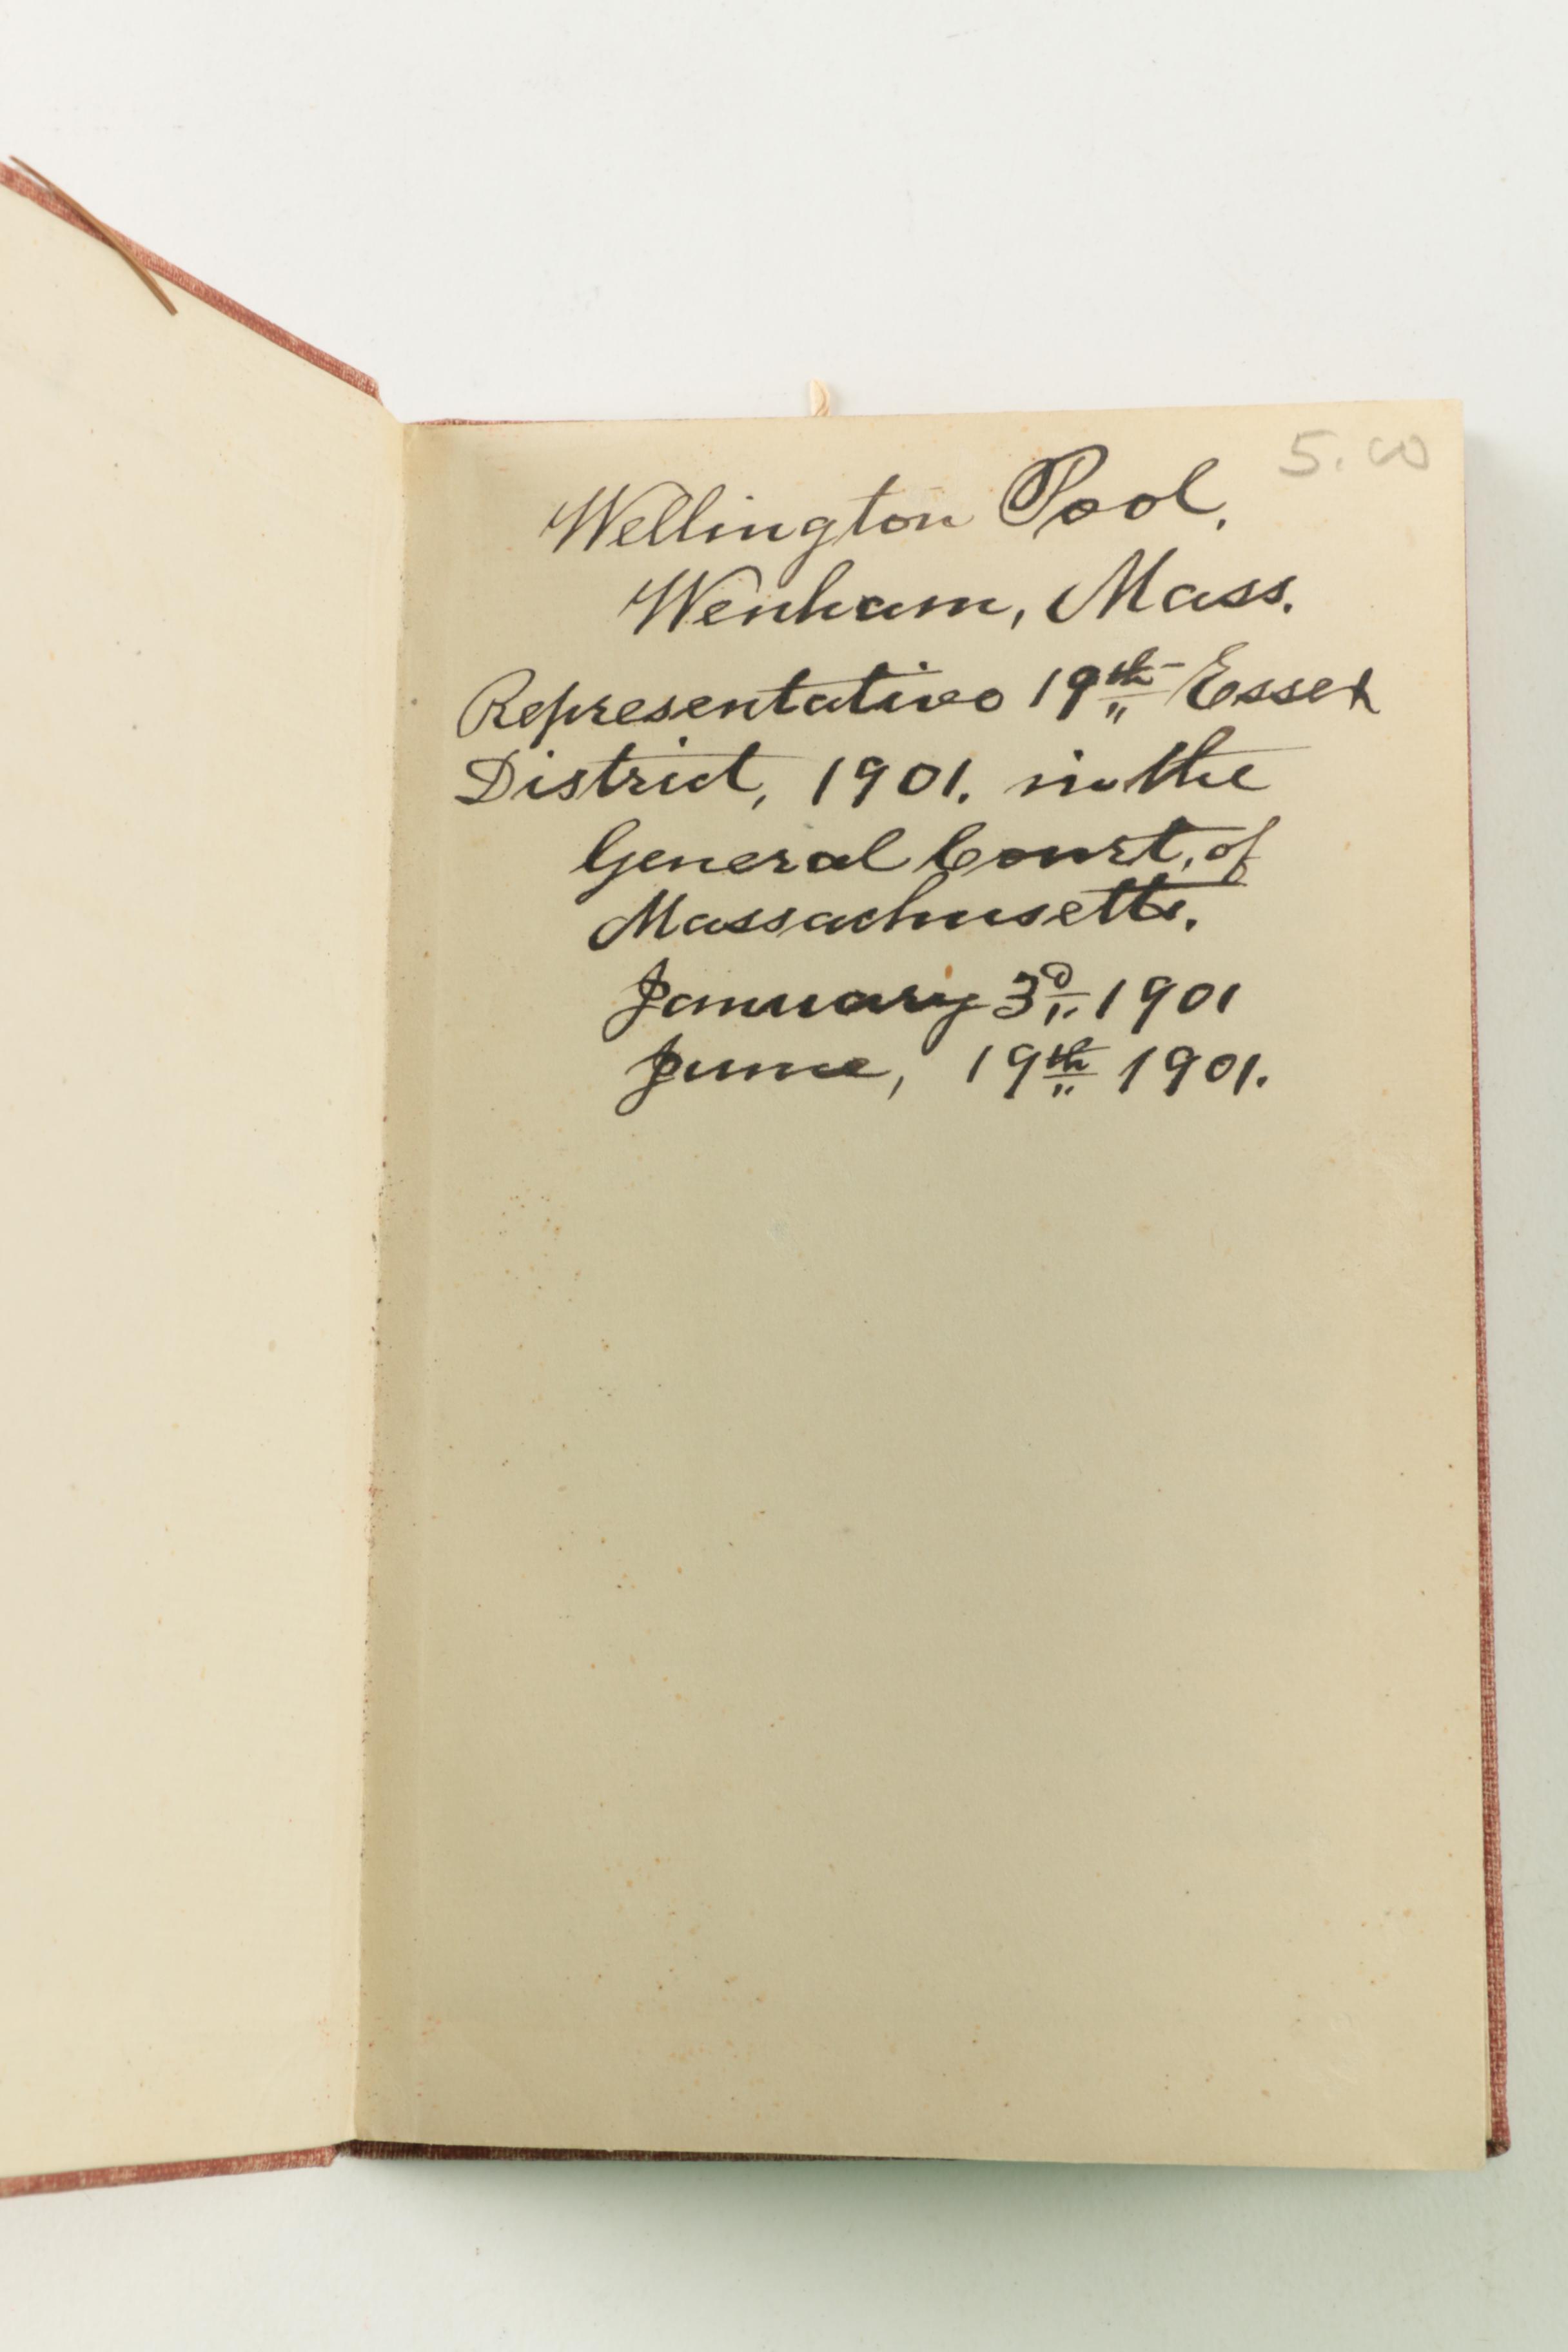 5.00
Wellington Pool,
Wenham, Mass.
Representative 19th Essex
District, 1901. in the
General Court, of
Massachusetts.
January 3d 1901
June, 19th 1901.